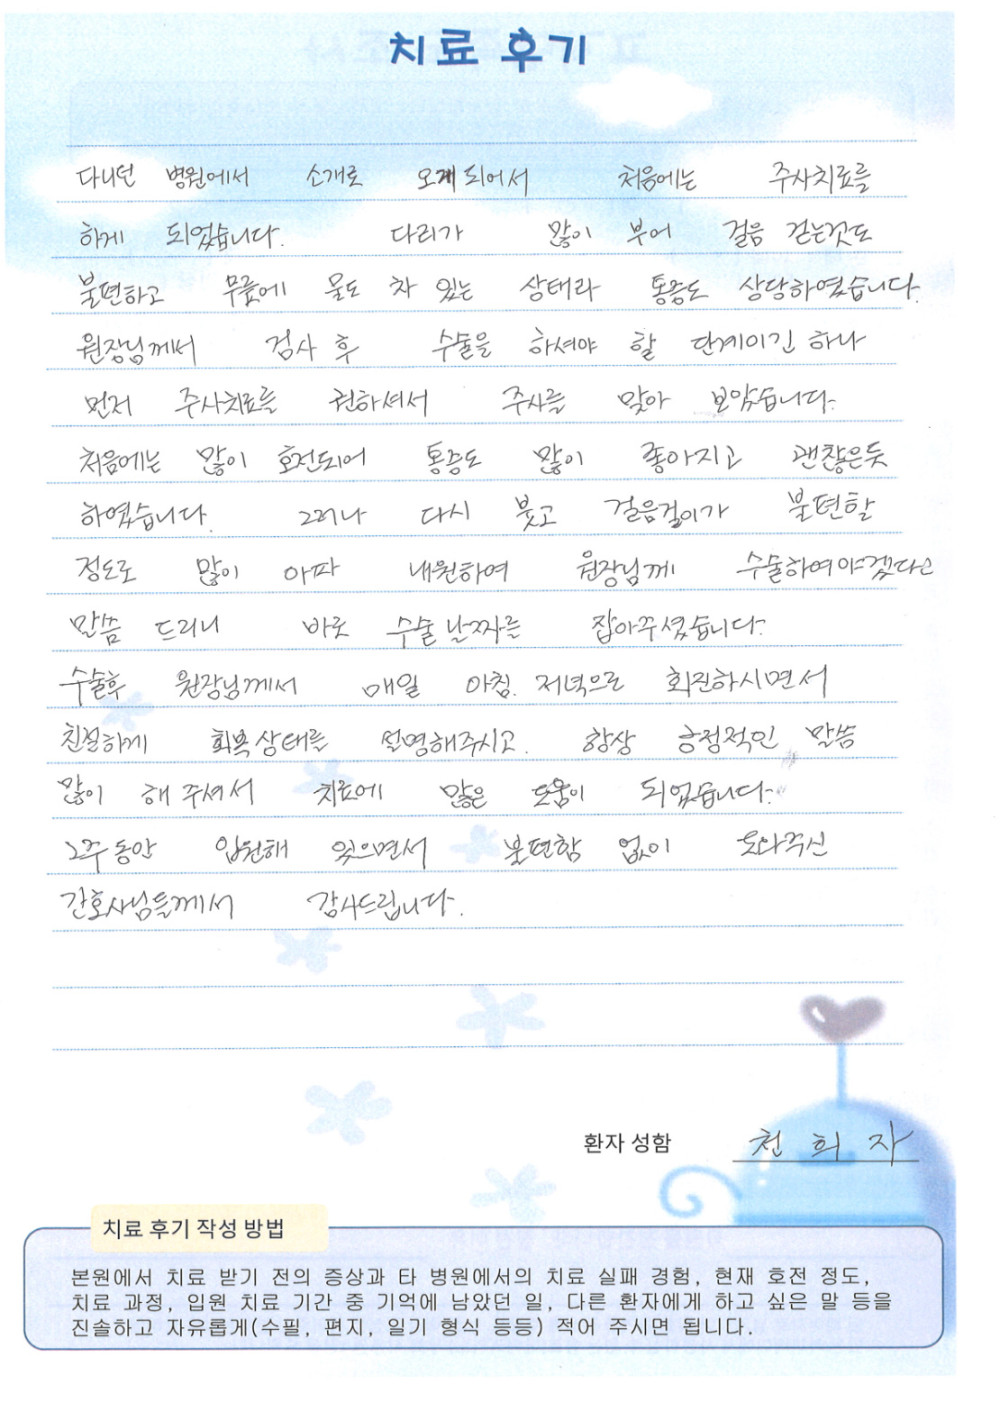 치료 후기
다니던 병원에서 소개로 오게 되어서 처음에는 주사치료를
하게 되었습니다. 다리가 많이 부어 걸음 걷는것도
불편하고 무릎에 물도 차 있는 상태라 통증도 상당하였습니다.
원장님께서 검사 후 수술을 하셔야 할 단계이긴 하나
먼저 주사치료를 권하셔서 주사를 맞아 보았습니다.
처음에는 많이 호전되어 통증도 많이 좋아지고 괜찮은듯
하였습니다. 그러나 다시 붓고 걸음걸이가 불편할
정도로 많이 아파 내원하여 원장님께 수술하여야겠다고
말씀 드리니 바로 수술 날짜를 잡아주셨습니다.
수술후 원장님께서 매일 아침. 저녁으로 회진하시면서
친절하게 회복상태를 설명해주시고. 항상 긍정적인 말씀
많이 해 주셔서 치료에 많은 도움이 되었습니다.
2주 동안 입원해 있으면서 불편함 없이 도와주신
간호사님들께서 감사드립니다.
환자 성함 천 희 자
치료 후기 작성 방법
본원에서 치료 받기 전의 증상과 타 병원에서의 치료 실패 경험, 현재 호전 정도,
치료 과정, 입원 치료 기간 중 기억에 남았던 일, 다른 환자에게 하고 싶은 말 등을
진솔하고 자유롭게(수필, 편지, 일기 형식 등등) 적어 주시면 됩니다.